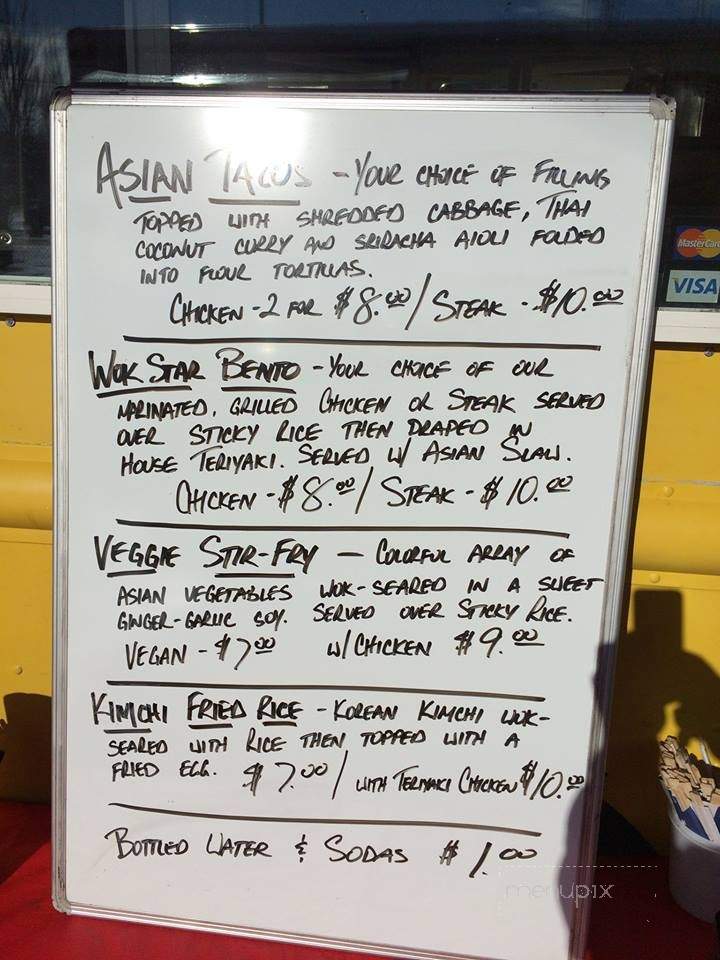 ASIAN TACOS - YOUR CHOICE OF FILLINGS
TOPPED WITH SHREDDED CABBAGE, THAI
COCONUT CURRY AND SRIRACHA AIOLI FOLDED
INTO FLOUR TORTILLAS.
CHICKEN - 2 FOR $8.00 / STEAK - $10.00
MasterCard
VISA
WOK STAR BENTO - YOUR CHOICE OF OUR
MARINATED, GRILLED CHICKEN OR STEAK SERVED
OVER STICKY RICE THEN DRAPED IN
HOUSE TERIYAKI. SERVED W/ ASIAN SLAW.
CHICKEN - $8.00 / STEAK - $10.00
VEGGIE STIR-FRY — COLORFUL ARRAY OF
ASIAN VEGETABLES WOK-SEARED IN A SWEET
GINGER-GARLIC SOY. SERVED OVER STICKY RICE.
VEGAN - $7.00 W/ CHICKEN $9.00
KIMCHI FRIED RICE - KOREAN KIMCHI WOK-
SEARED WITH RICE THEN TOPPED WITH A
FRIED EGG. $7.00 / WITH TERIYAKI CHICKEN $10.00
BOTTLED WATER & SODAS $1.00
menupix